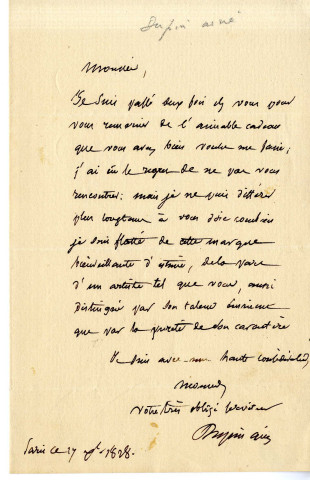 Dupin ainé
Monsieur,
Je suis passé deux fois chez vous pour
vous remercier de l'aimable cadeau
que vous avez bien voulu me faire;
j'ai eu le regret de ne pas vous
rencontrer: mais je ne puis différer
plus longtems à vous dire combien
je suis flatté de cette marque
bienveillante d'estime, de la part
d'un artiste tel que vous, aussi
distingué par son talent
que par la pureté de son caractère
Je suis avec une haute considération,
Monsieur
votre très obligé serviteur
Dupin ainé
Paris ce 27 1828.